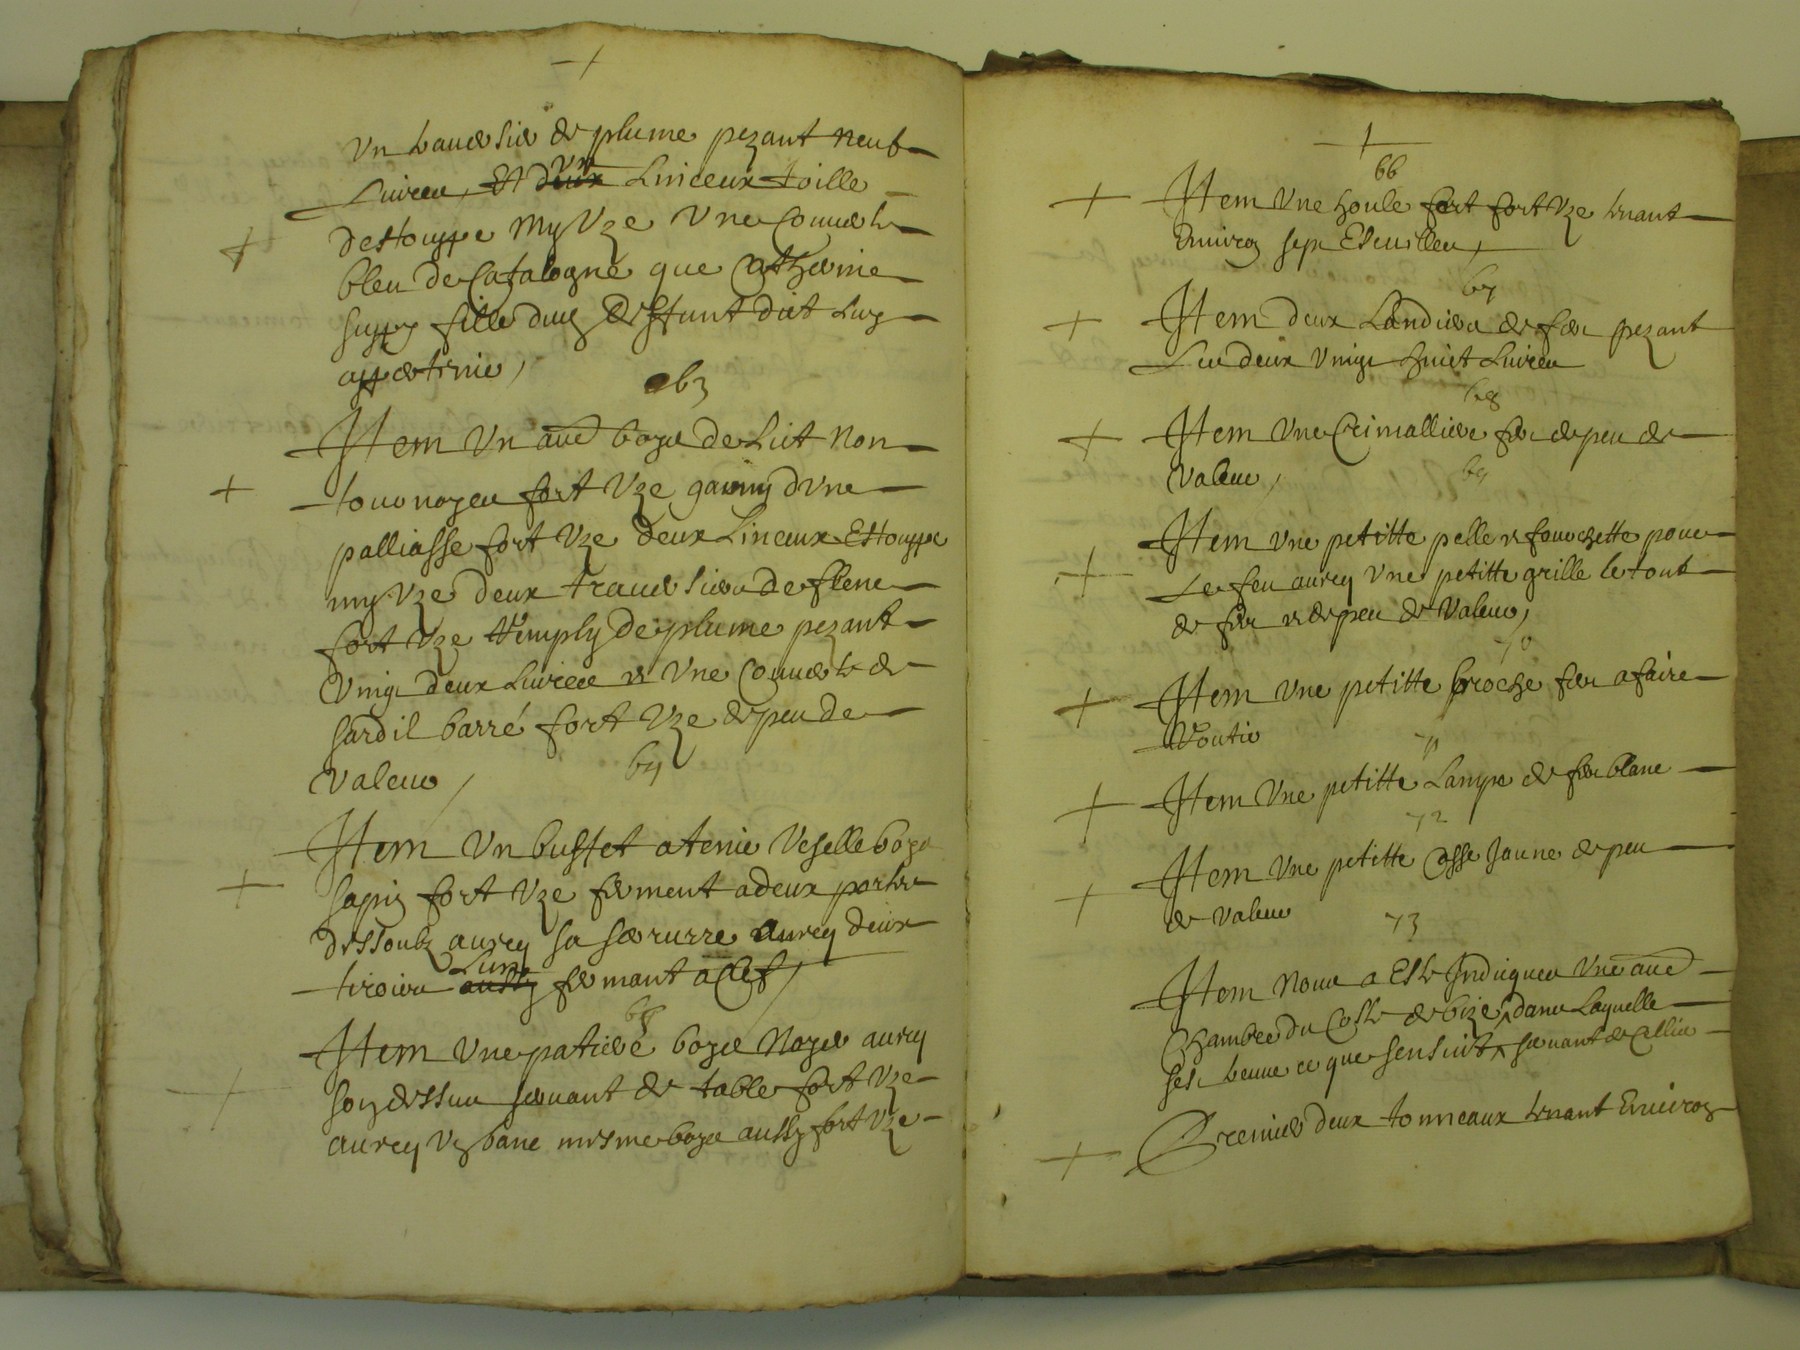 Un traversier de plume pezant neuf
Livres, Et deux un Linceux toille
destouppe my Uze Une Couverte
bleu de Catalogne que Catherine
fille dud deffunt dict luy
appartenir,
63
Item Un autre boys de Lict non
tournoyer fort Uze garny dune
palliasse fort Uze deux Linceux Estouppe
my Uze deux traversiers de flene
fort Uze Remply de plume pezant
Vingt deux Livres et Une Couverte de
sardil barré fort Uze de peu de
Valeur,
64
Item Un buffet a tenir Veselle boys
sapin fort Uze ferment a deux portes
dessoubz avecq sa serrurre avecq deux
tiroirs aussy Lung fermant a Clef,
65
Item Une patiere boys Noyer avecq
son dessus servant de table fort Uze
avecq Ung banc mesme boys aussy fort Uze
66
Item Une houle fort fort Uze tenant
Environ sept Escuilles,
67
Item deux Landiers de fer pezant
Les deux Vingt huict Livres
68
Item Une Crimalliere fer de peu de
Valeur,
69
Item Une petitte pelle et fourchette pour
Le feu avecq Une petitte grille le tout
de fer et de peu de Valeur,
70
Item Une petitte broche fer a faire
Routir
71
Item Une petitte Lampe de fer blanc
72
Item Une petitte Casse Jaune de peu
de Valeur
73
Item Nous a Este Indiquee Une autre
Chambre du Coste de bize, dans Laquelle
sest treuve ce que sensuict, servant de Cellier
Premier deux tonneaux tenant Environ